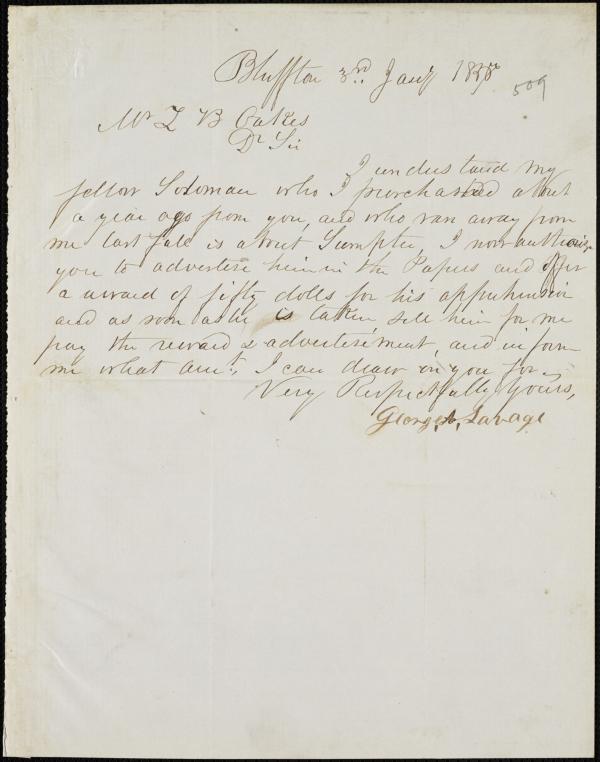 Bluffton 3rd Jany 185
509
Mr Z B Oakes
Dr Sir
I understand my
fellow Soloman who I purchased about
a year ago from you, and who ran away from
me last fall is about Sumpter, I now authorise
you to advertise him in the Papers and offer
a award of fifty dolls for his apprehension
and as soon as he is taken, sell him for me
pay the reward & advertisement, and inform
me what amt, I can draw on you for,
Very Respectfully Yours,
George A, Savage